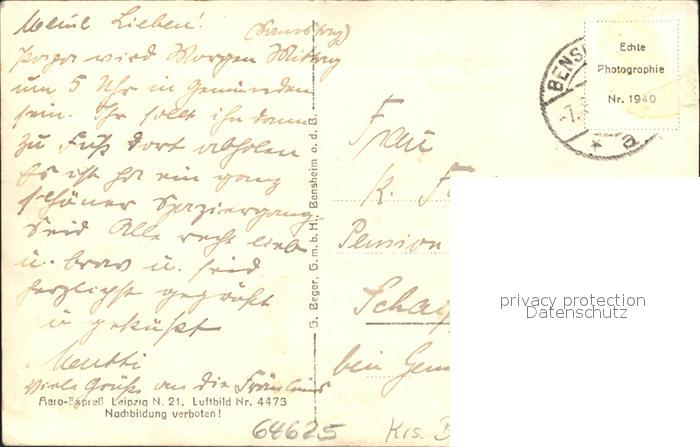 Meine Lieben!
(Samstag)
Papa wird Morgen Mittag
um 5 Uhr in Gemünden
sein. Ihr sollt ihn dann
zu Fuß dort abholen
Es ist ja ein ganz
schöner Spaziergang.
Seid Alle recht lieb
u. brav u. seid
herzlichst gegrüßt
u geküßt
Mutti
Viele Grüße an die Fräuleins
Aero-Expreß Leipzig N. 21. Luftbild Nr. 4473
Nachbildung verboten!
G. Beger, G.m.b.H., Bensheim a.d.B.
Echte
Photographie
Nr. 1940
BENS
a
Frau
K. F
Pension
bei Gem
privacy protection
Datenschutz
64625
Krs. B